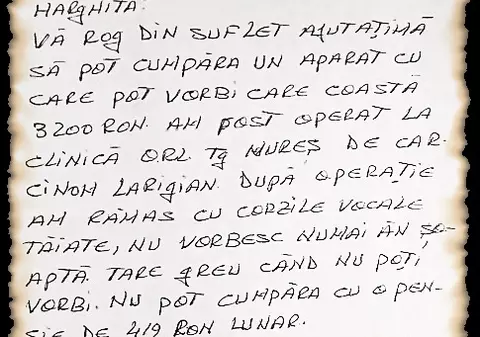 HARGHITA.
VĂ ROG DIN SUFLET AJUTAȚIMĂ
SĂ POT CUMPĂRA UN APARAT CU
CARE POT VORBI CARE COASTĂ
3200 RON. AM POST OPERAT LA
CLINICĂ ORL. Tg MUREȘ DE CAR-
CINOM LARIGIAN. DUPĂ OPERAȚIE
AM RĂMAS CU CORZILE VOCALE
TĂIATE, NU VORBESC NUMAI ÂN ȘO-
APTĂ. TARE GREU CÂND NU POȚI
VORBI. NU POT CUMPĂRA CU O PEN-
SIE DE 419 RON LUNAR.